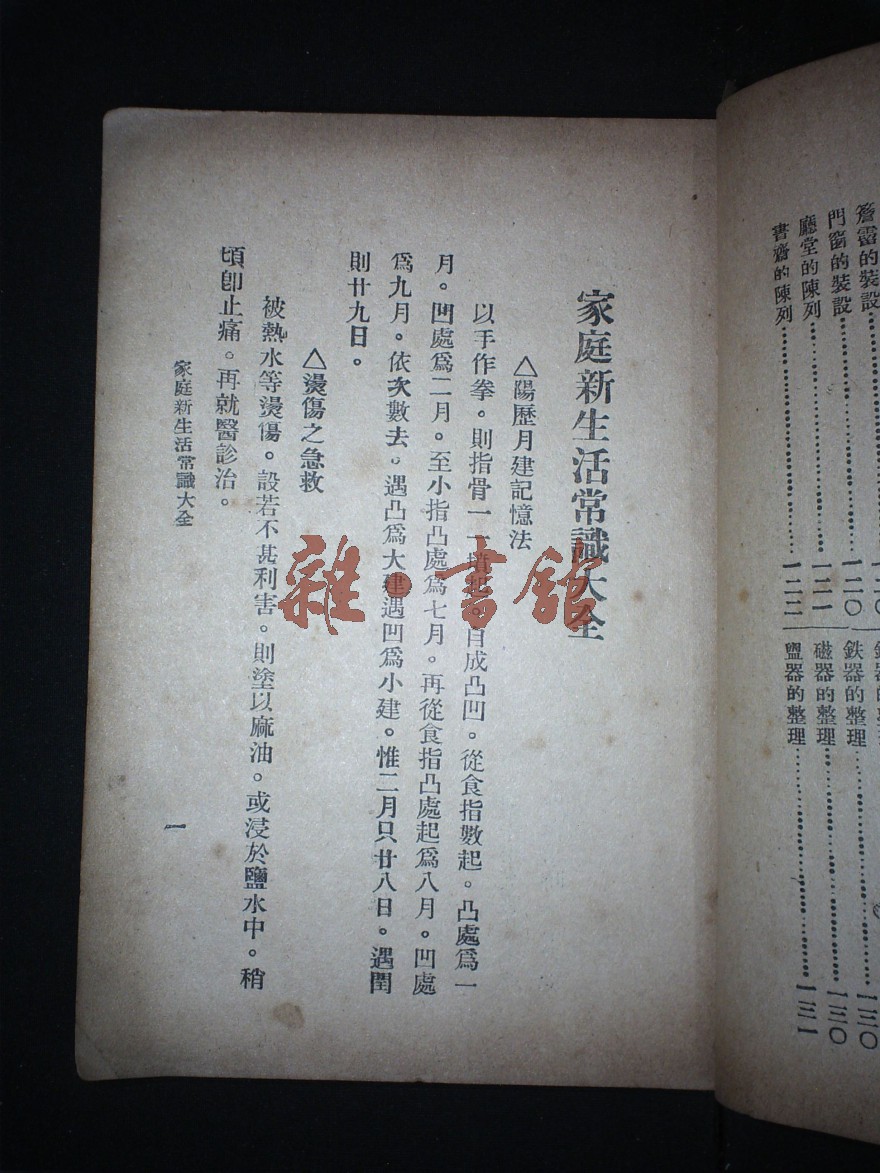 簷霤的裝設
門窗的裝設……一二〇
廳堂的陳列……一二一
書齋的陳列……一二二
鉄器的整理……一三〇
磁器的整理……一三〇
盥器的整理……一三一
家庭新生活常識大全
△陽歷月建記憶法
以手作拳。則指骨一一墳起。自成凸凹。從食指數起。凸處爲一
月。凹處爲二月。至小指凸處爲七月。再從食指凸處起爲八月。凹處
爲九月。依次數去。遇凸爲大建遇凹爲小建。惟二月只廿八日。遇閏
則廿九日。
△燙傷之急救
被熱水等燙傷。設若不甚利害。則塗以麻油。或浸於鹽水中。稍
頃卽止痛。再就醫診治。
家庭新生活常識大全
一
雜·書館